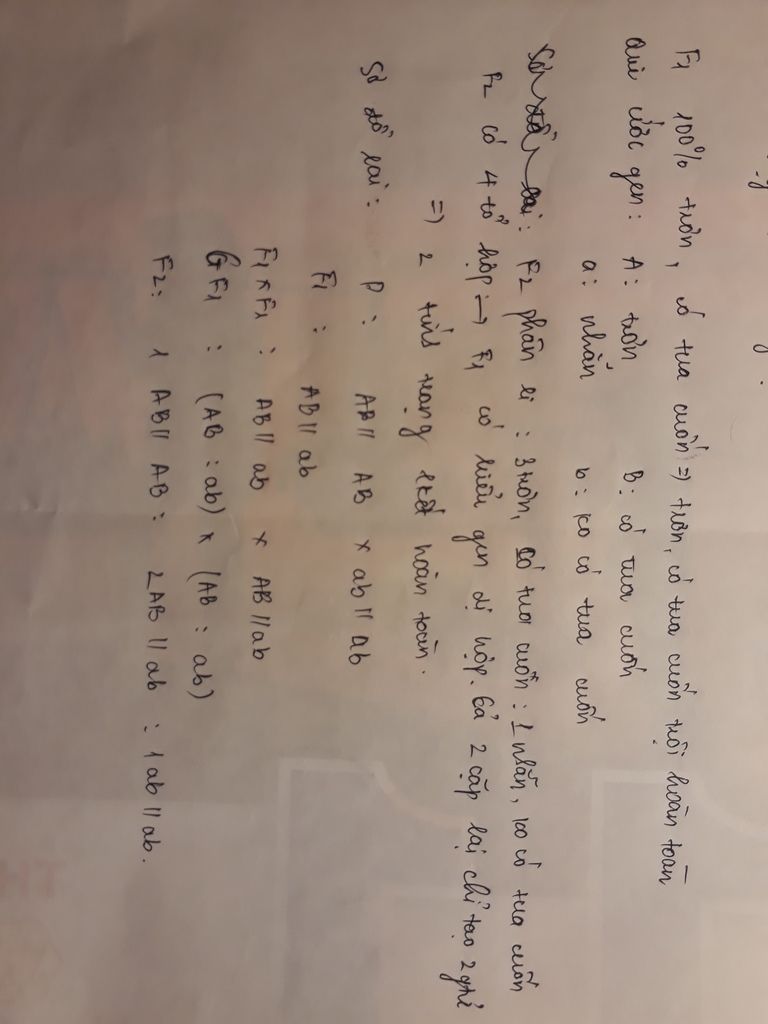 F1 100% trơn, có tua cuốn => trơn, có tua cuốn trội hoàn toàn
Qui ước gen: A: trơn B: có tua cuốn
a: nhăn b: ko có tua cuốn
Sơ đồ lai: F2 phân li: 3 trơn, có tua cuốn: 1 nhăn, ko có tua cuốn
F2 có 4 tổ hợp → F1 có kiểu gen dị hợp. Cả 2 cặp lại chỉ tạo 2 gtử
=> 2 tính trạng lkết hoàn toàn.
Sơ đồ lai: P: AB // AB x ab // ab
F1: AB // ab
F1 x F1: AB // ab x AB // ab
GF1: (AB : ab) x (AB : ab)
F2: 1 AB // AB : 2AB // ab : 1 ab // ab.
TH